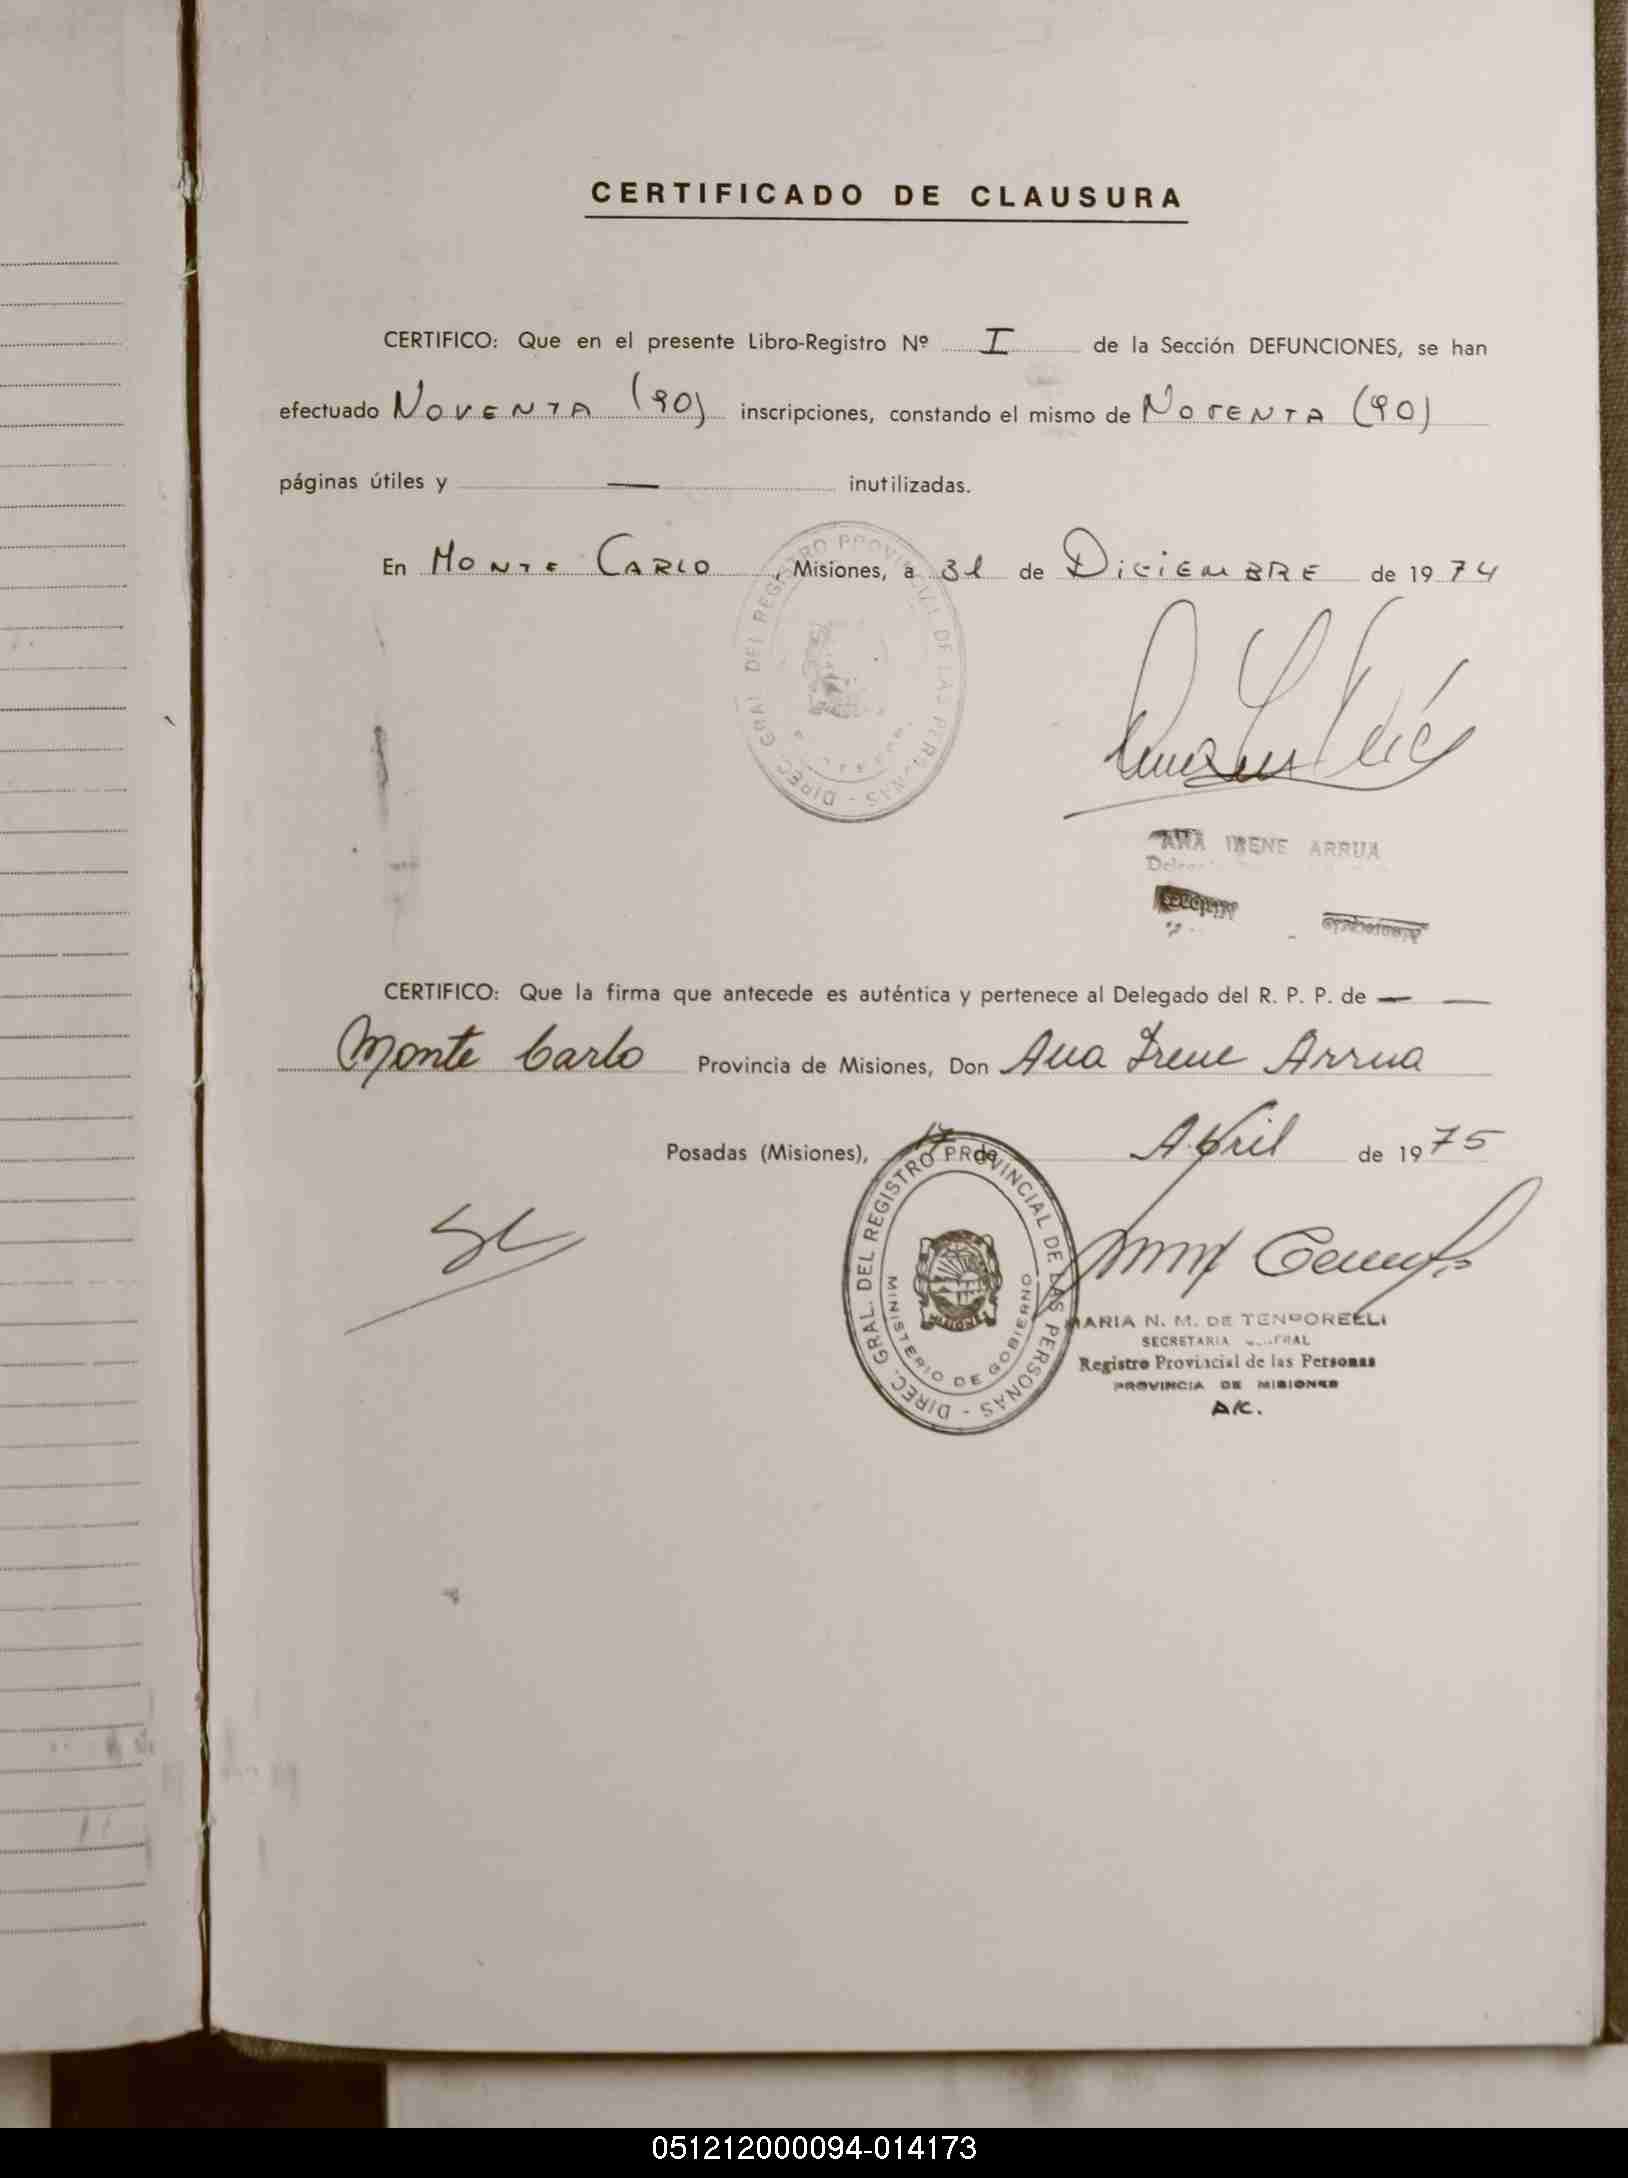 CERTIFICADO DE CLAUSURA
CERTIFICO: Que en el presente Libro-Registro Nº I de la Sección DEFUNCIONES, se han
efectuado NOVENTA (90) inscripciones, constando el mismo de NOVENTA (90)
páginas útiles y — inutilizadas.
En MONTE CARLO, Misiones, a 31 de DICIEMBRE de 1974
DIREC. GRAL. DEL REGISTRO PROVINCIAL DE LAS PERSONAS -
ANA IRENE ARRUA
CERTIFICO: Que la firma que antecede es auténtica y pertenece al Delegado del R. P. P. de — —
Monte Carlo Provincia de Misiones, Don Ana Irene Arrua
Posadas (Misiones), 17 de Abril de 1975
DIREC. GRAL. DEL REGISTRO PROVINCIAL DE LAS PERSONAS -
MINISTERIO DE GOBIERNO
MARIA N. M. DE TENPORELLI
SECRETARIA GENERAL
Registro Provincial de las Personas
PROVINCIA DE MISIONES
A/C.
051212000094-014173